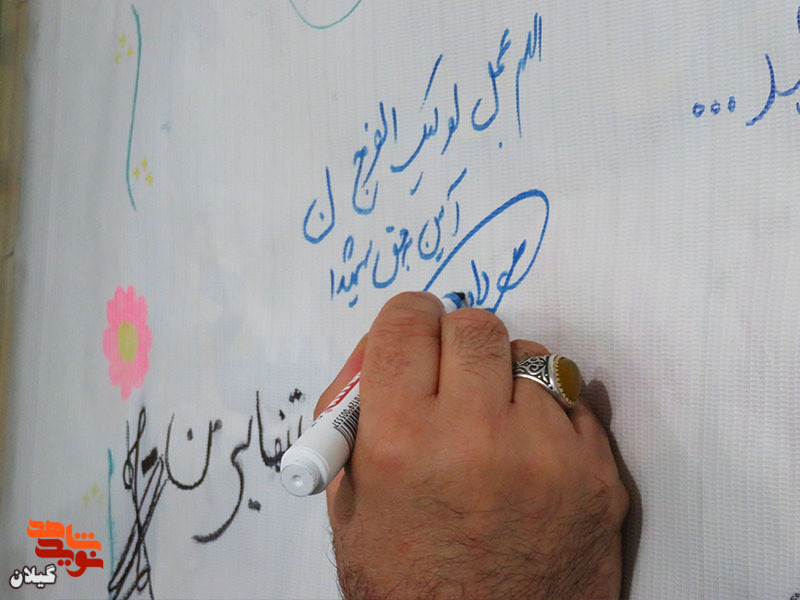 اللهم عجل لولیک الفرج
آمین بحق شهدا
تنهایی من
یـد...
نوید شاهد
گیلان